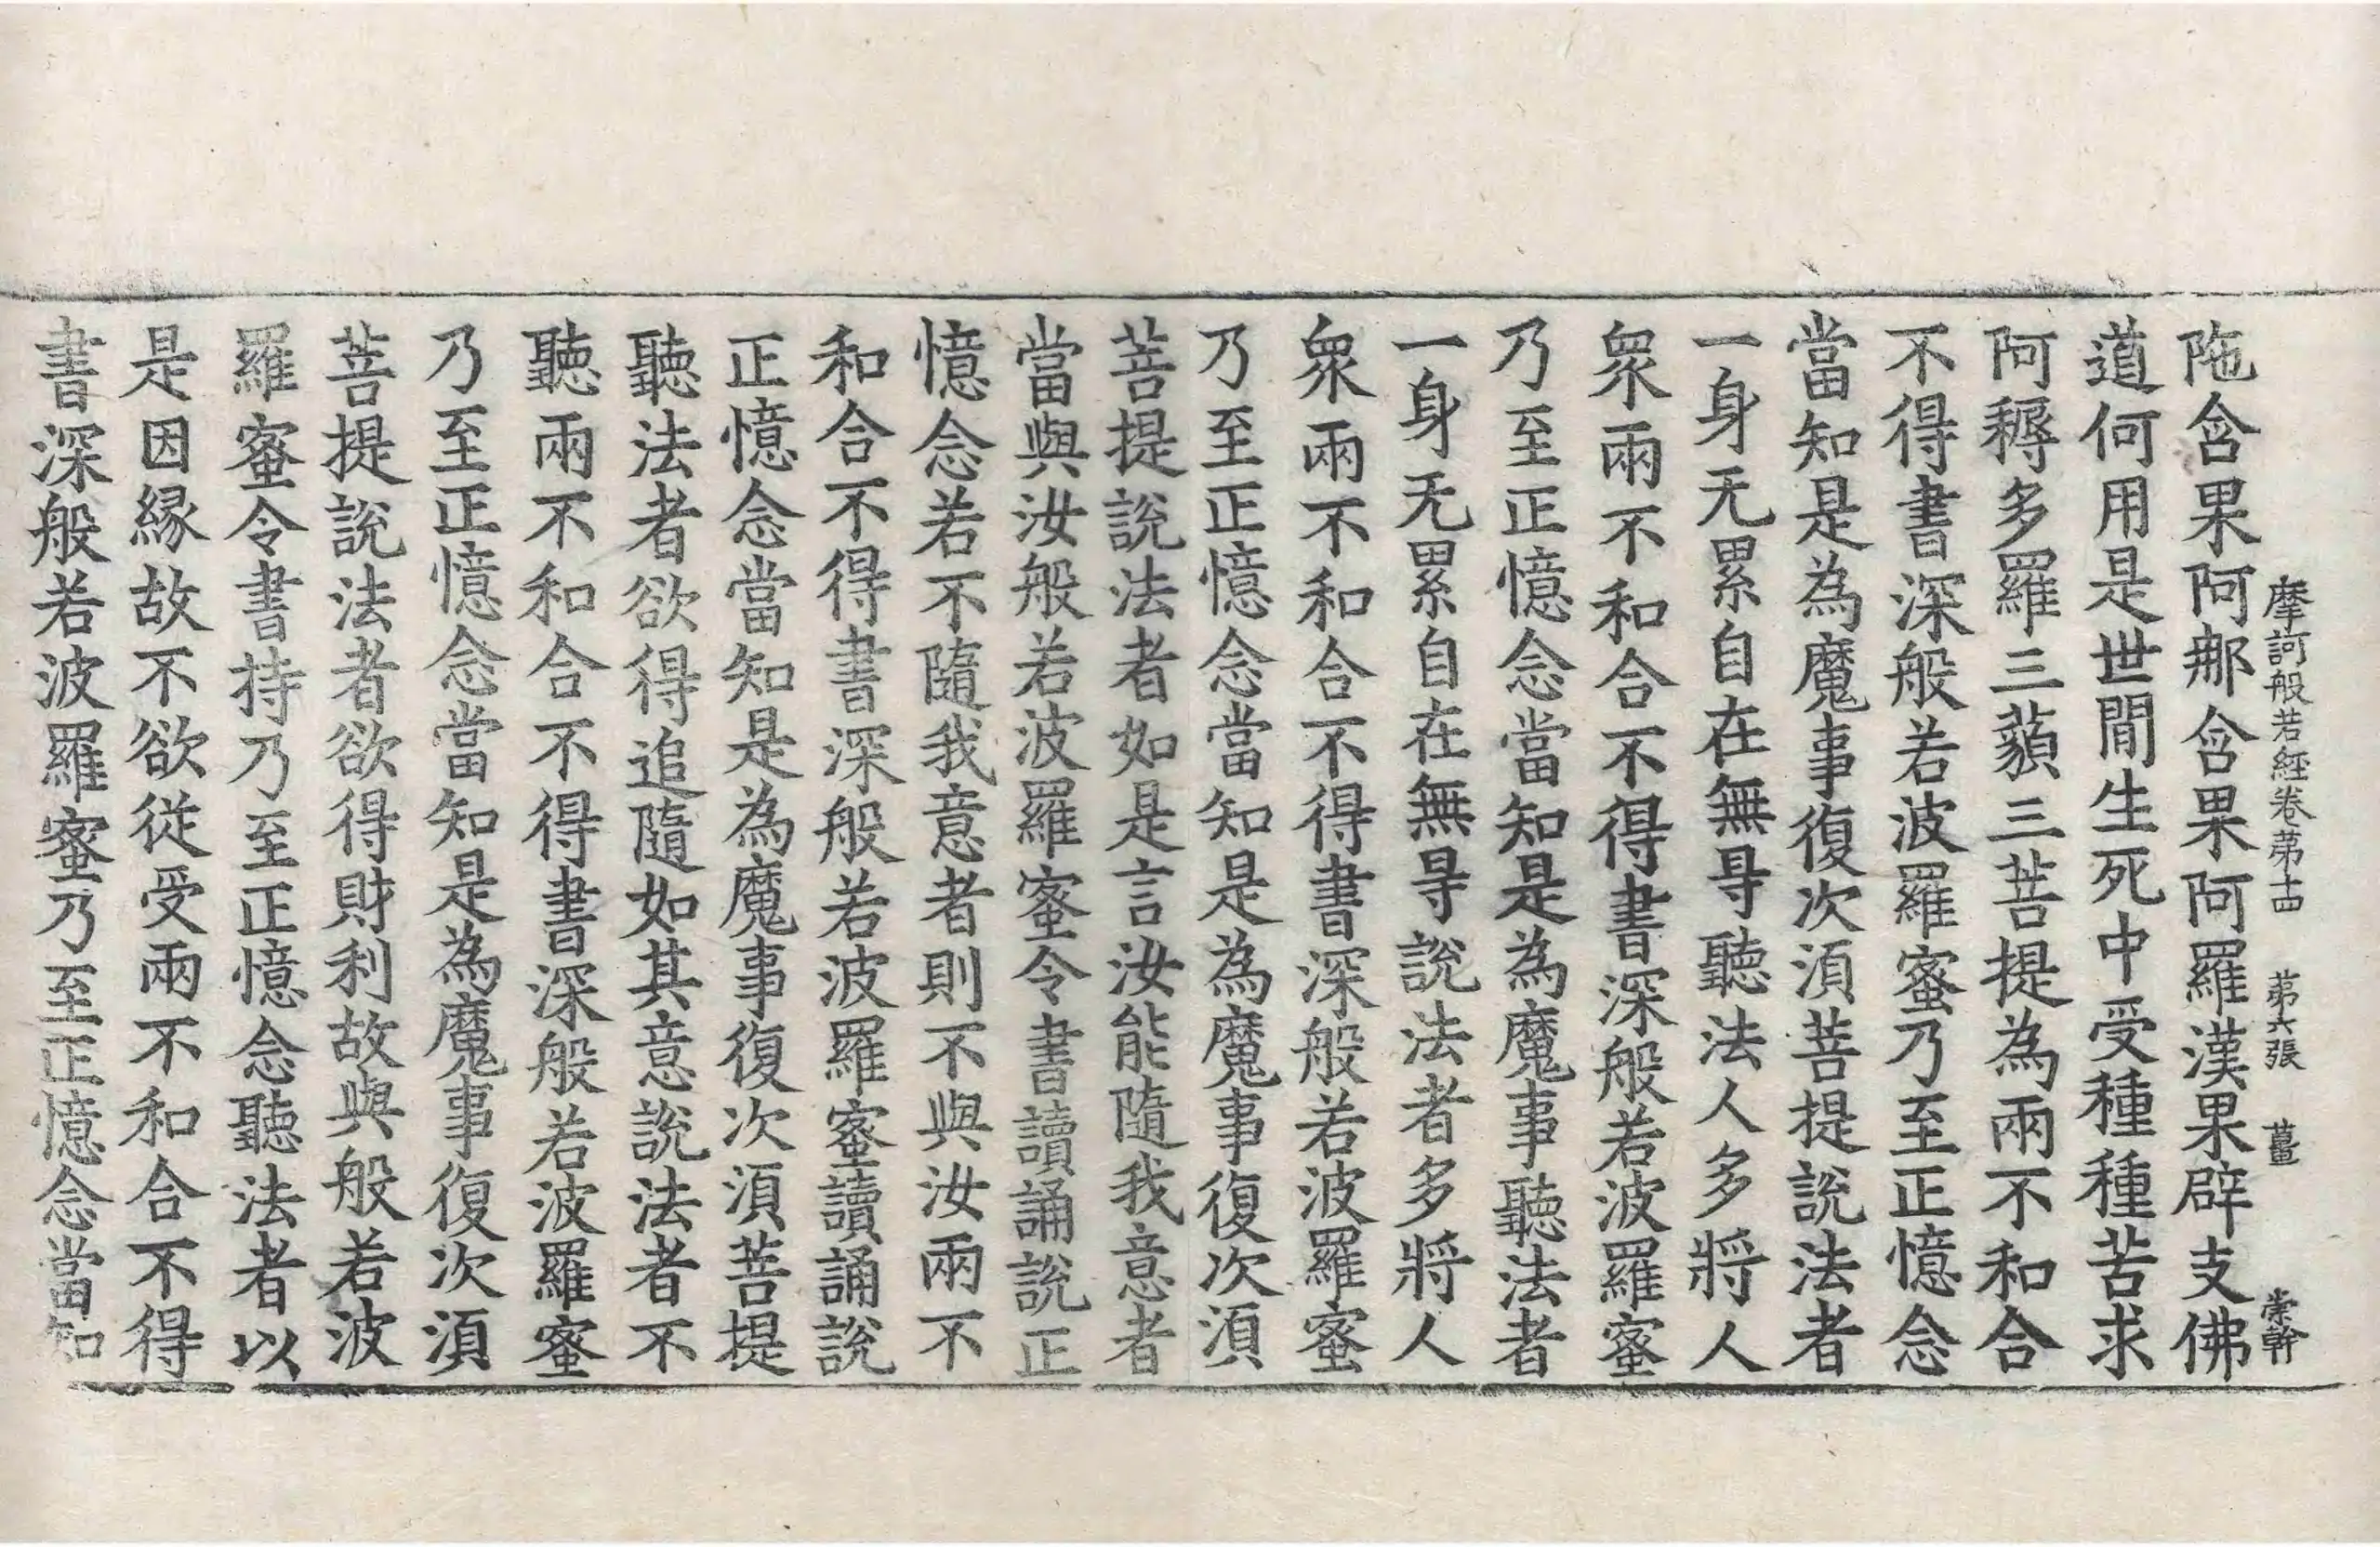 摩訶般若經卷苐十四 苐六張 薑 崇幹
陁含果阿那含果阿羅漢果辟支佛
道何用是世間生死中受種種苦求
阿耨多羅三藐三菩提為兩不和合
不得書深般若波羅蜜乃至正憶念
當知是為魔事復次湏菩提說法者
一身无累自在無㝵聽法人多將人
衆兩不和合不得書深般若波羅蜜
乃至正憶念當知是為魔事聽法者
一身无累自在無㝵說法者多將人
衆兩不和合不得書深般若波羅蜜
乃至正憶念當知是為魔事復次湏
菩提說法者如是言汝能隨我意者
當與汝般若波羅蜜令書讀誦說正
憶念若不隨我意者則不與汝兩不
和合不得書深般若波羅蜜讀誦說
正憶念當知是為魔事復次湏菩提
聽法者欲得追隨如其意說法者不
聽兩不和合不得書深般若波羅蜜
乃至正憶念當知是為魔事復次湏
菩提說法者欲得財利故與般若波
羅蜜令書持乃至正憶念聽法者以
是因緣故不欲從受兩不和合不得
書深般若波羅蜜乃至正憶念當知